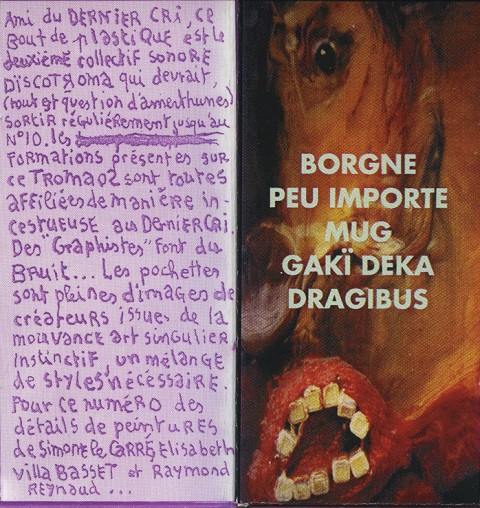 Ami du DERNIER CRI, CE
BOUT de PLASTIQUE EST LE
deuxième collectif SONORE
DISCOTROMA qui devrait,
(tout est question d'amerthunes)
SORTIR régulièrement jusqu'au
N°10. Les
FORMATIONS présentes SUR
CE TROMA02 SONT TOUTES
AFFILIÉES de manière in-
cestueuse au DERNIER CRI.
Des "Graphistes" FONT du
BRUIT... Les pochettes
sont pleines d'images de
créateurs issues de la
mouvance art singulier
instinctif, un mélange
de styles nécéssaire.
Pour ce numéro des
détails de peintures
de Simone le CARRÉ, Elisabeth
villa BASSET et RAYMOND
REYNAUD ...
BORGNE
PEU IMPORTE
MUG
GAKÏ DEKA
DRAGIBUS